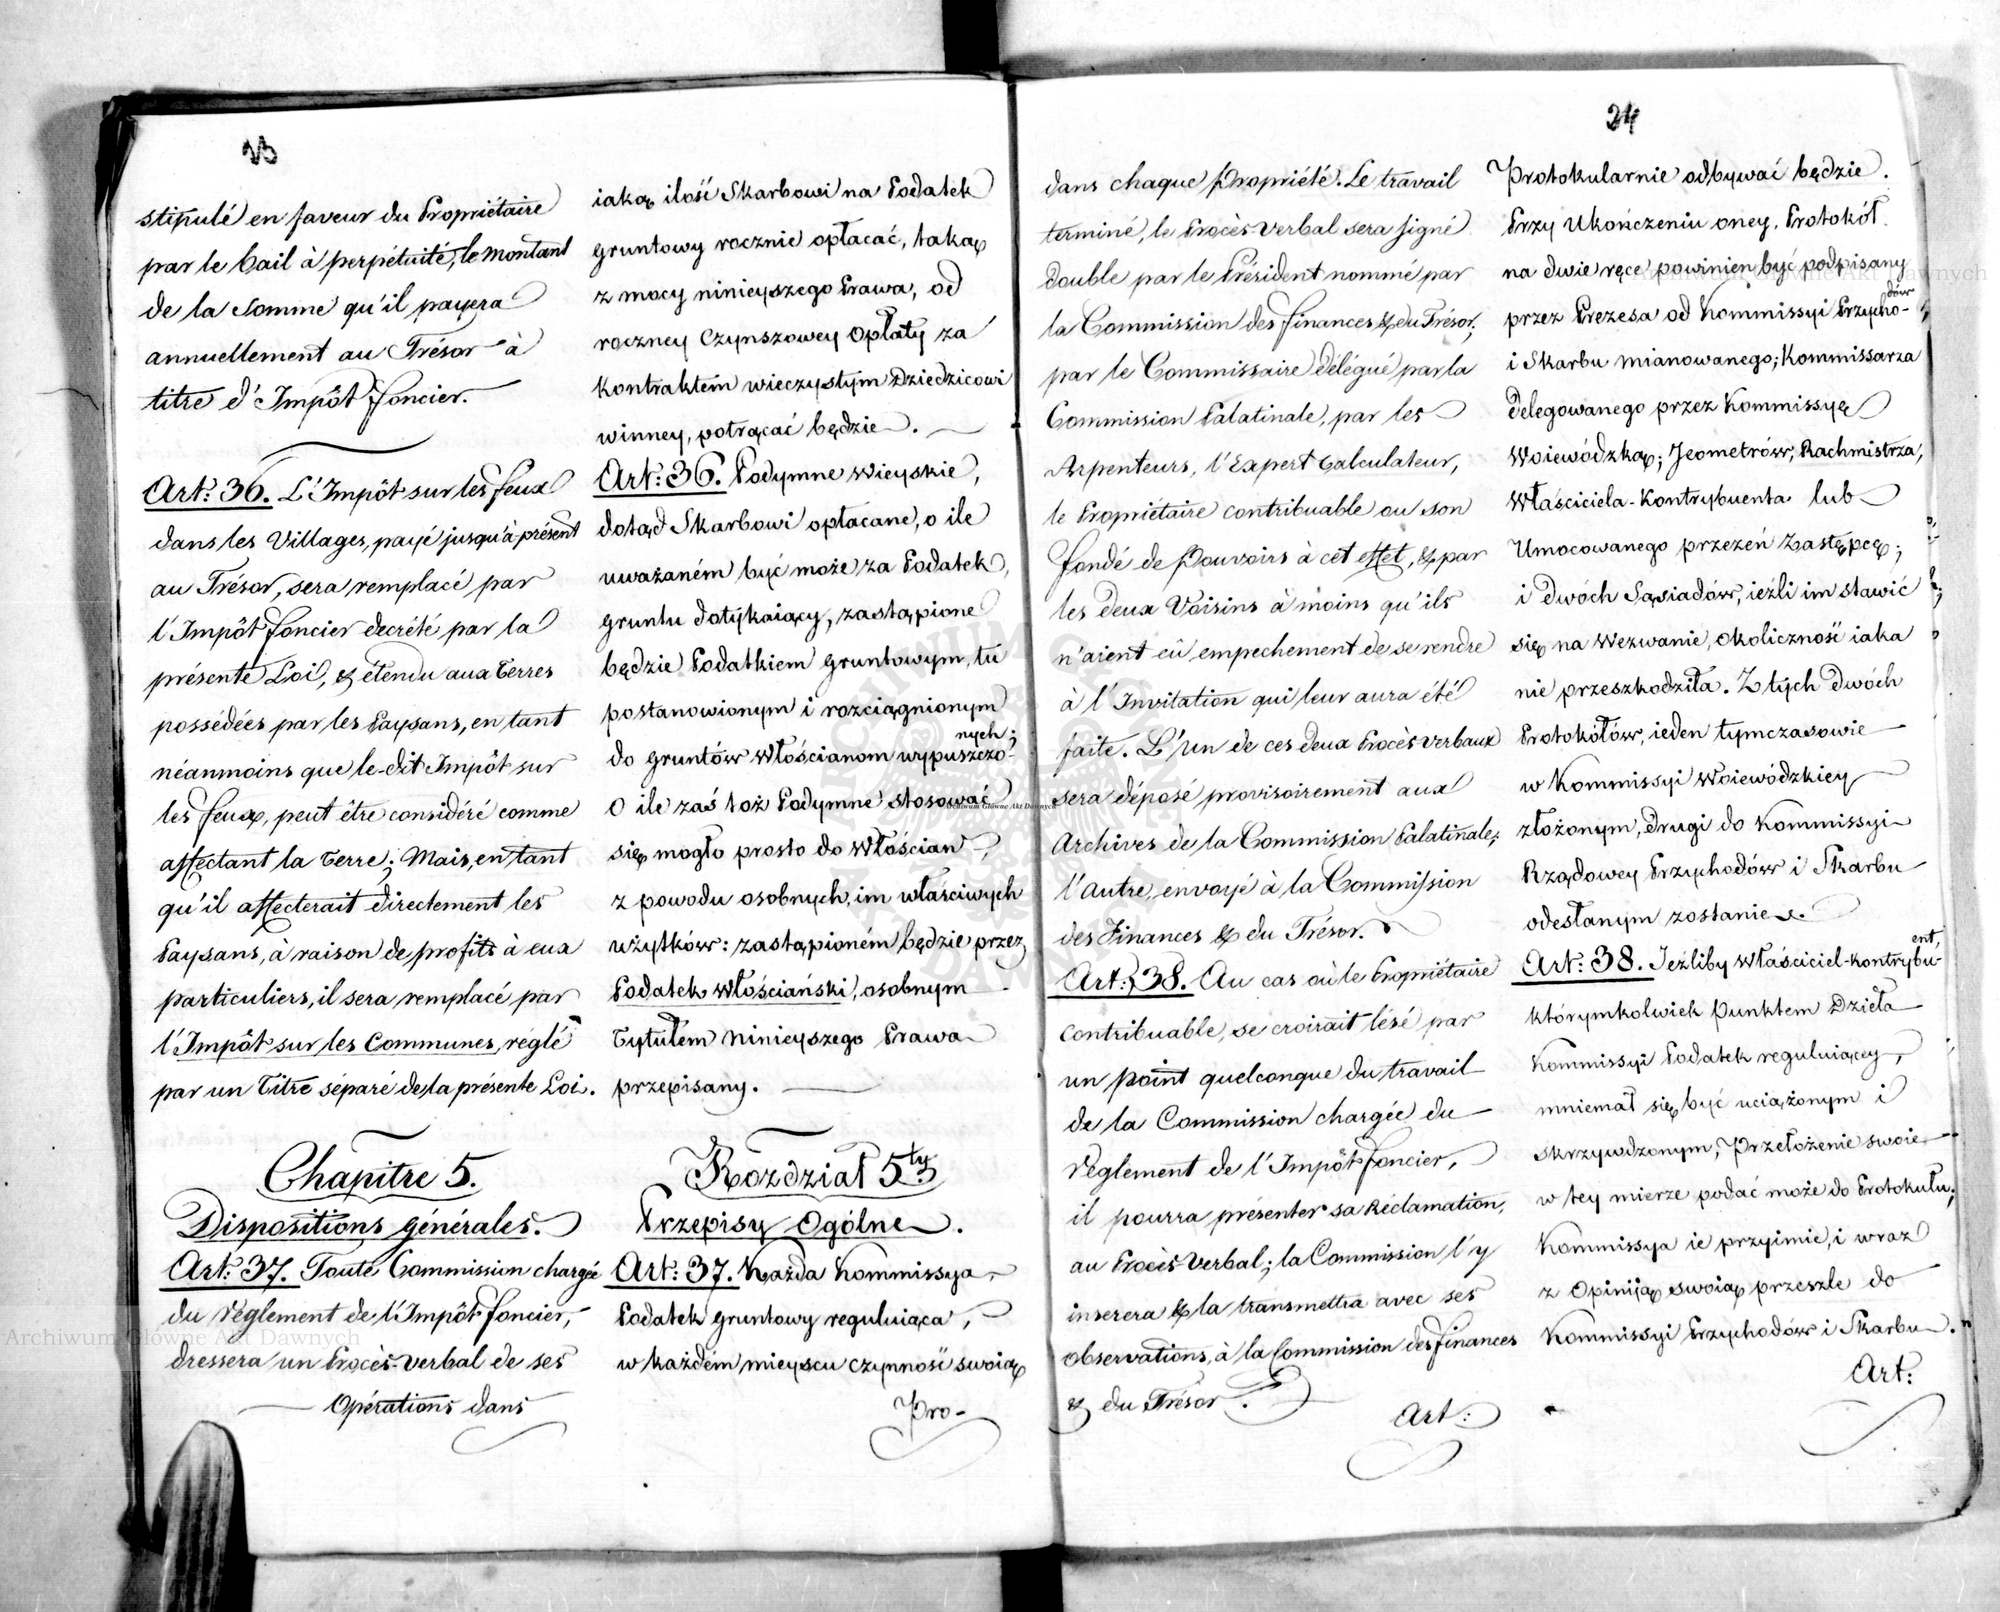 23
stipulé en faveur du Propriétaire
par le bail à perpétuité, le montant
de la Somme qu'il payera
annuellement au Trésor à
titre d'Impôt foncier.
Art: 36. L'Impôt sur les feux
dans les Villages, payé jusqu'à présent
au Trésor, sera remplacé par
l'Impôt foncier decrété par la
présente Loi, & étendu aux Terres
possédées par les Paysans, en tant
néanmoins que le-dit Impôt sur
les feux, peut être considéré comme
affectant la Terre; Mais, en tant
qu'il affecterait directement les
Paysans, à raison de profits à eux
particuliers, il sera remplacé par
l'Impôt sur les Communes, réglé
par un Titre séparé de la présente Loi.
Chapitre 5.
Dispositions générales.
Art: 37. Toute Commission chargée
du Règlement de l'Impôt foncier,
dressera un Procès-verbal de ses
Opérations dans
iaką ilość Skarbowi na Podatek
gruntowy rocznie opłacać, taką
z mocy ninieyszego Prawa, od
roczney Czynszowey Opłaty za
kontraktem wieczystym Dziedzicowi
winney, potrącać będzie.
Art: 36. Podymne wieyskie,
dotąd Skarbowi opłacane, o ile
uważaném być może za Podatek,
gruntu dotykaiący, zastąpione
będzie Podatkiem gruntowym, tu
postanowionym i rozciągnionym
do gruntów Włościanom wypuszczo-
nych;
O ile zaś toż Podymne stosować
się mogło prosto do Włościan,
z powodu osobnych, im właściwych
użytków: zastąpioném będzie przez
Podatek włościański, osobnym
Tytułem Ninieyszego Prawa
przepisany.
Rozdział 5ty
Przepisy Ogólne.
Art: 37. Każda Kommissya
Podatek gruntowy reguluiąca,
w każdém mieyscu czynność swoią
Pro-
24
dans chaque Propriété. Le travail
terminé, le Procès-verbal sera signé
double par le Président nommé par
la Commission des finances & du Trésor;
par le Commissaire délégué par la
Commission Palatinale, par les
Arpenteurs, l'Expert Calculateur,
le Propriétaire contribuable ou son
fondé de Pouvoirs à cet effet, & par
les deux Voisins à moins qu'ils
n'aient eû empechement de se rendre
à l'Invitation qui leur aura été
faite. L'un de ces deux Procès verbaux
sera déposé provisoirement aux
Archives de la Commission Palatinale;
l'autre, envoyé à la Commission
des Finances & du Trésor.
Art: 38. Au cas où le Propriétaire
contribuable, se croirait lésé par
un point quelconque du travail
de la Commission chargée du
Règlement de l'Impôt foncier,
il pourra présenter sa Réclamation,
au Procès-verbal; la Commission l'y
inserera & la transmettra avec ses
observations, à la Commission des finances
& du Trésor.
Art:
Protokularnie odbywać będzie.
Przy Ukończeniu oney, Protokół
na dwie ręce powinien być podpisany
przez Prezesa od Kommissyi Przycho-
dów
i Skarbu mianowanego; Kommissarza
delegowanego przez Kommissyę
Woiewódzką; Jeometrów; Rachmistrza;
Właściciela-Kontrybuenta lub
Umocowanego przezeń Zastępcę;
i dwóch Sąsiadów, ieźli im stawić
się na Wezwanie, okoliczność iaka
nie przeszkodziła. Z tych dwóch
Protokółów, ieden tymczasowie
w Kommissyi Woiewódzkiey
złożonym, drugi do Kommissyi
Rządowey Przychodów i Skarbu
odesłanym zostanie.
Art: 38. Jeźliby właściciel-kontrybu-
ent,
którymkolwiek Punktem Dzieła
Kommissyi Podatek reguluiącey,
mniemał się być uciążonym i
skrzywdzonym; Przełożenie swoie
w tey mierze podać może do Protokułu;
Kommissya ie przyimie, i wraz
z Opiniją swoią przeszle do
Kommissyi Przychodów i Skarbu.
Art:
Archiwum Główne Akt Dawnych
Archiwum Główne Akt Dawnych
Archiwum Główne Akt Dawnych